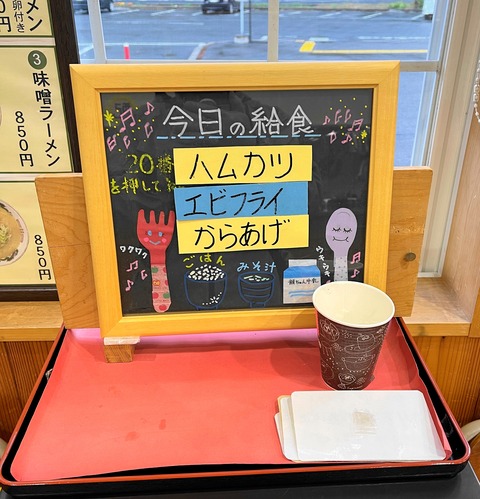 卵付き
円
❸
味噌ラーメン
850円
850
円
今日の給食
20番
を押して
ハムカツ
エビフライ
からあげ
ワクワク
ごはん
みそ汁
ウキウキ